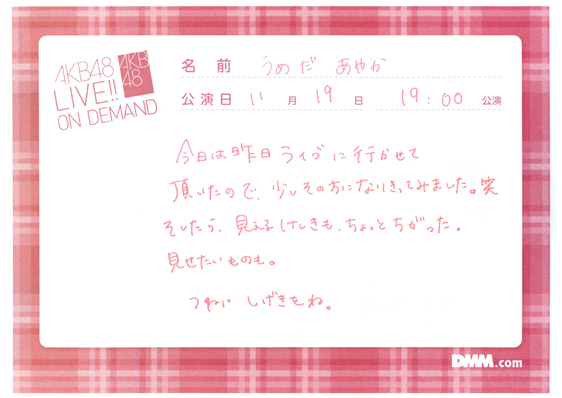 AKB48
LIVE!!
ON DEMAND
AKB
48
名 前 うめだ あやか
公演日 11 月 19 日 19:00 公演
今日は昨日ライブに行かせて
頂いたので、少しその方になりきってみました。笑
そしたら、見えるけしきも、ちょっとちがった。
見せたいものも。
つねに しげきをね。
DMM.com